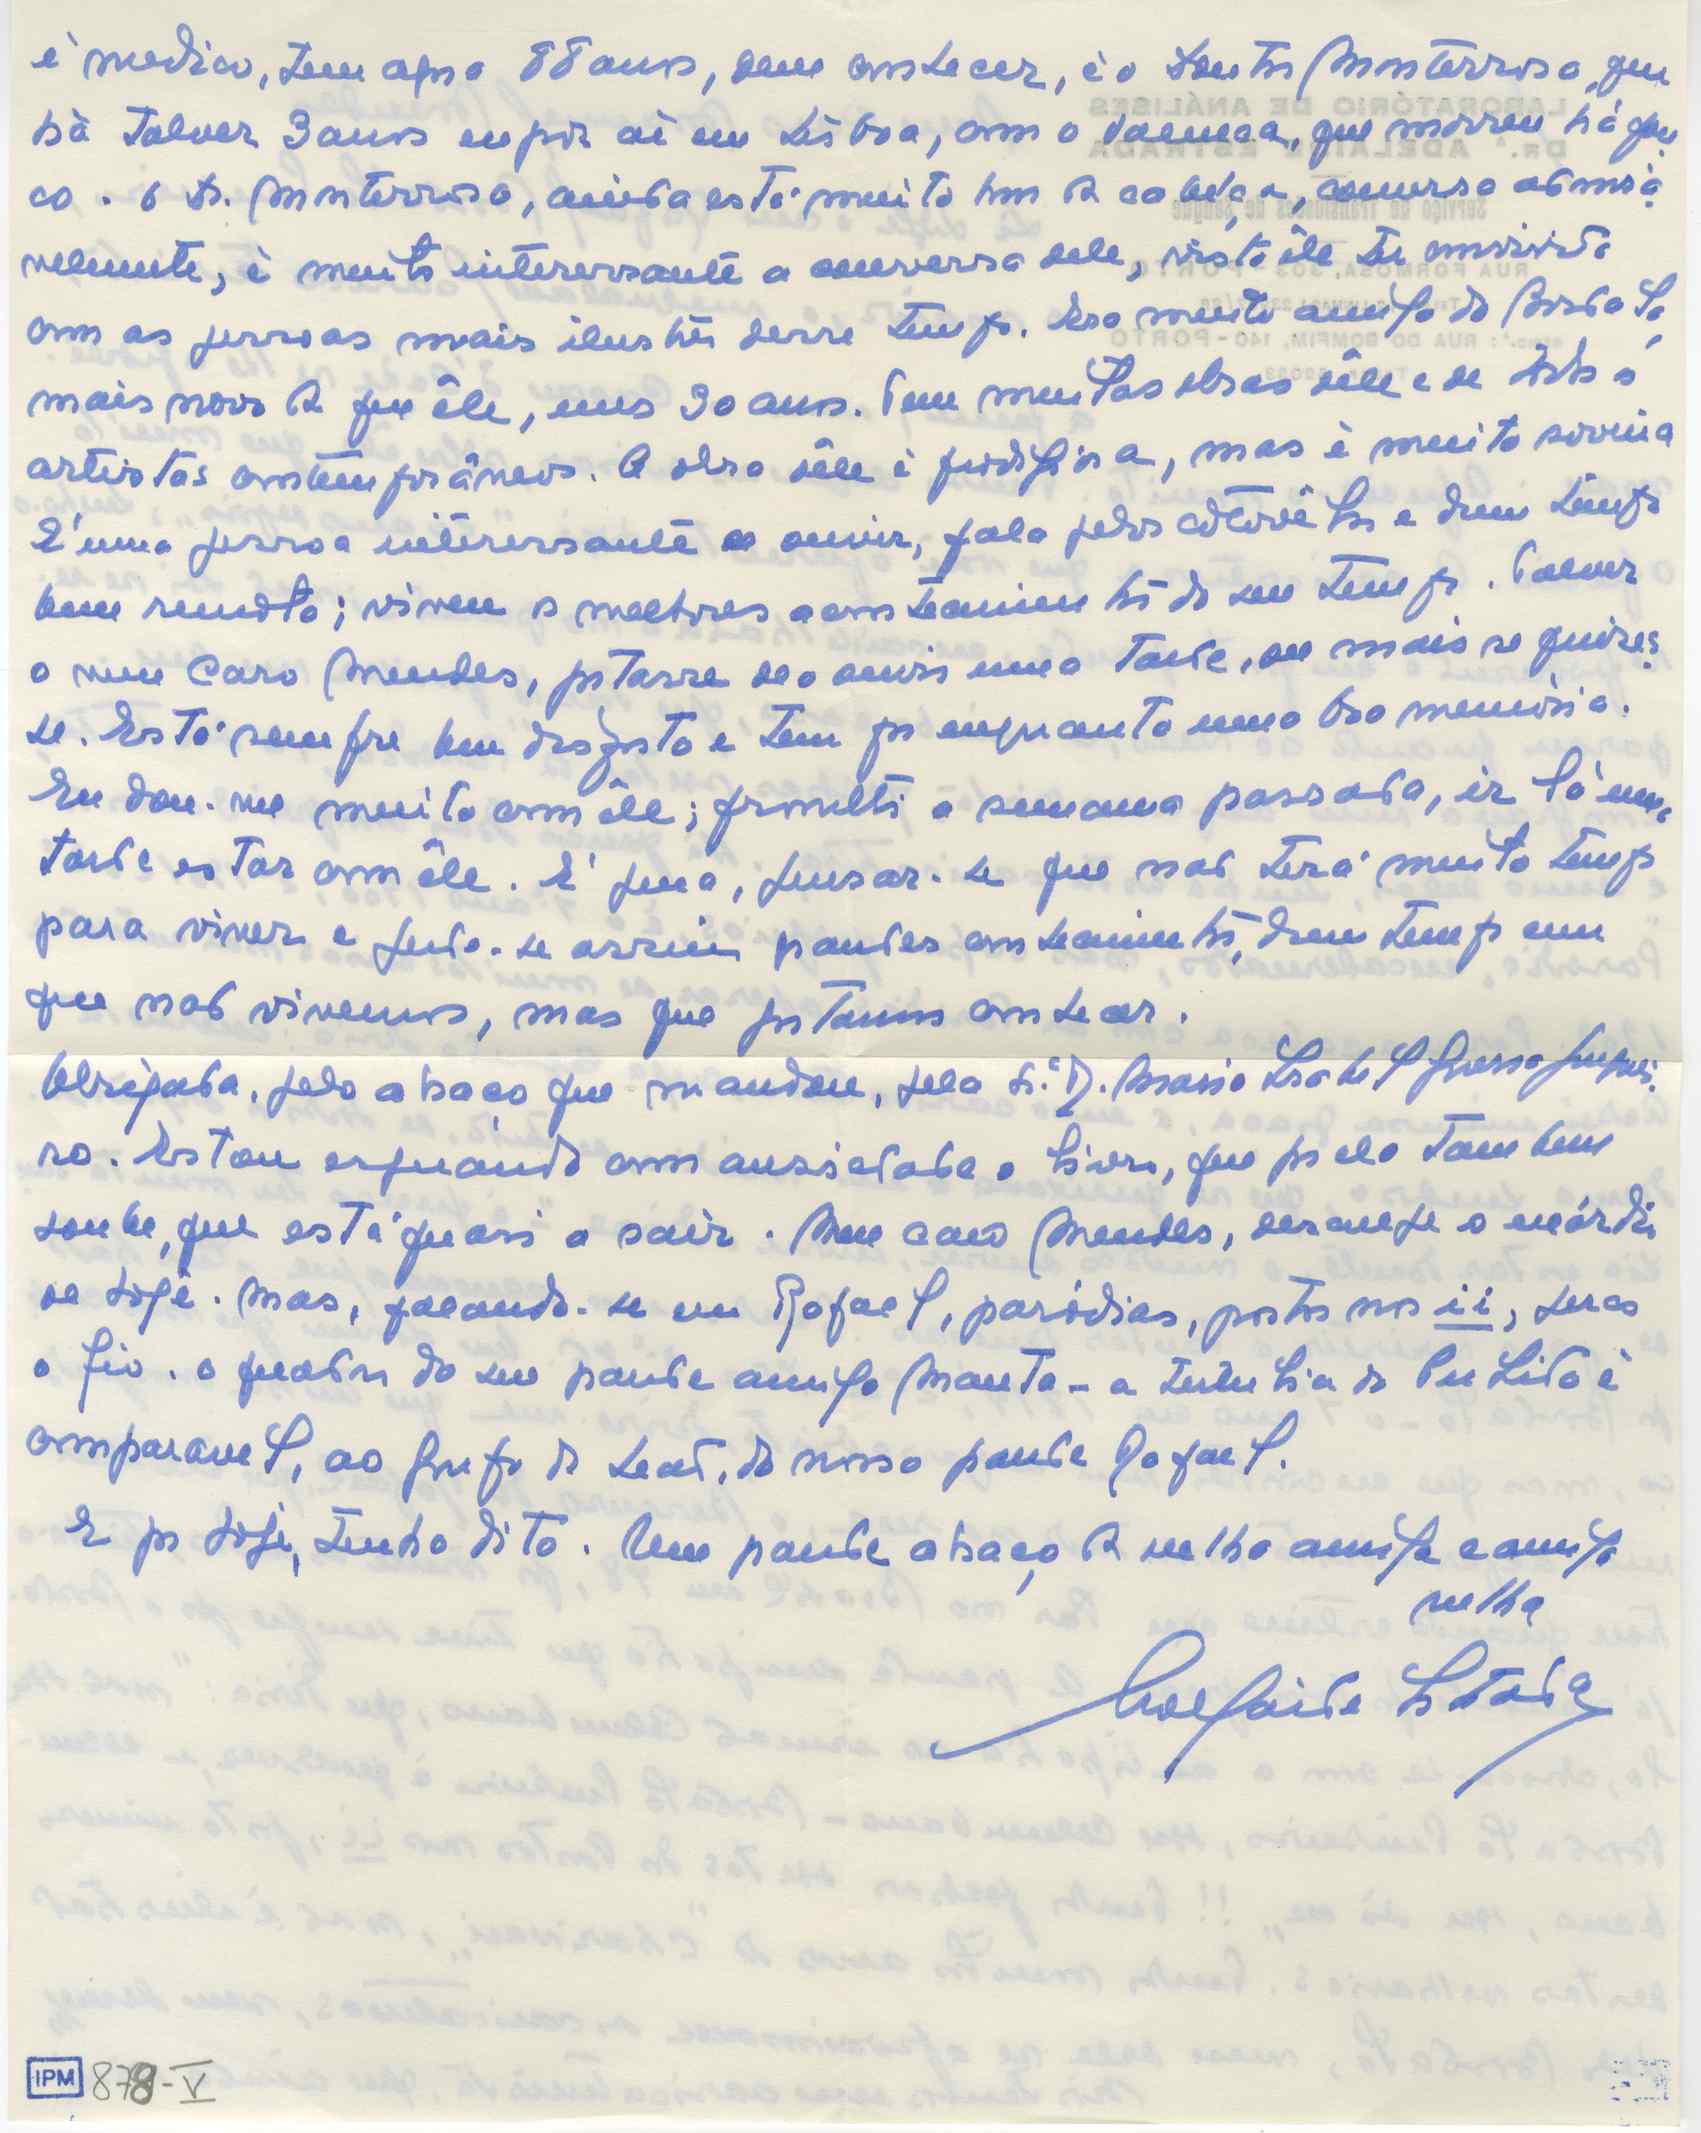 é medico, tem agora 88 anos, deve conhecer, é o Santos Monterroso, que
há talvez 3 anos expôs aí em Lisboa, com o Valença, que morreu há pou-
co. O Dr. Monterroso, ainda está muito bom de cabeça, conversa admirá-
velmente, é muito interessante a conversa dele, visto êle ter convivido
com as pessoas mais ilustres desse tempo. Era muito amigo do Bordalo,
mais novo do que êle, uns 30 anos. Tem muitas obras dêle e de todos os
artistas contemporâneos. A obra dêle é prodigiosa, mas é muito sovina
É uma pessoa interessante de ouvir, fala pelos cotovêlos e dum tempo
bem remoto; viveu os melhores acontecimentos do seu tempo. Talvez
o meu Caro Mendes, gostasse de o ouvir uma tarde, ou mais se quizes-
se. Está sempre bem disposto e tem por enquanto uma boa memória.
Eu dou-me muito com êle; prometi a semana passada, ir lá uma
tarde estar com êle. É pena, pensar-se que não terá muito tempo
para viver e perde-se assim grandes acontecimentos, dum tempo em
que não vivemos, mas que gostamos conhecer.
Obrigada, pelo abraço que mandou, pela Sr.ª D. Maria Isabel Guerra Junquei-
ro. Estou esperando com ansiedade o livro, que por ela também
soube, que está quasi a sair. Meu caro Mendes, desculpe o exórdio
de hoje. Mas, falando-se em Rafael, paródias, pontos nos ii, perco
o fio. O quadro do seu grande amigo Manta - a tertulia do
comparavel, ao Grupo do Leão, do nosso grande Rafael.
E por hoje, tenho dito. Um grande abraço da velha amiga e amiga
velha
Adelaide Estrada
LABORATÓRIO DE ANÁLISES
DR.ª ADELAIDE ESTRADA
Serviço de Transfusões de Sangue
RUA FORMOSA, 303 - PORTO
RUA DO BOMFIM, 140 - PORTO
IPM 878-V